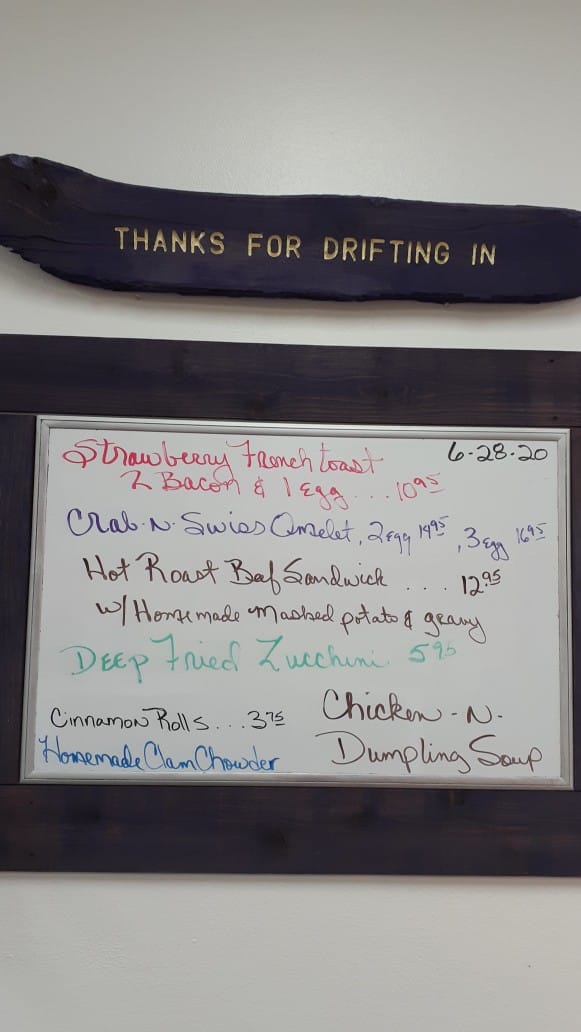 THANKS FOR DRIFTING IN
Strawberry French toast 6-28-20
2 Bacon & 1 Egg ... 10.95
Crab-N-Swiss Omelet, 2 egg 14.95, 3 egg 16.95
Hot Roast Beef Sandwick ... 12.95
w/ Homemade mashed potato & gravy
Deep Fried Zucchini 5.95
Cinnamon Rolls ... 3.75
Homemade Clam Chowder
Chicken-N-
Dumpling Soup